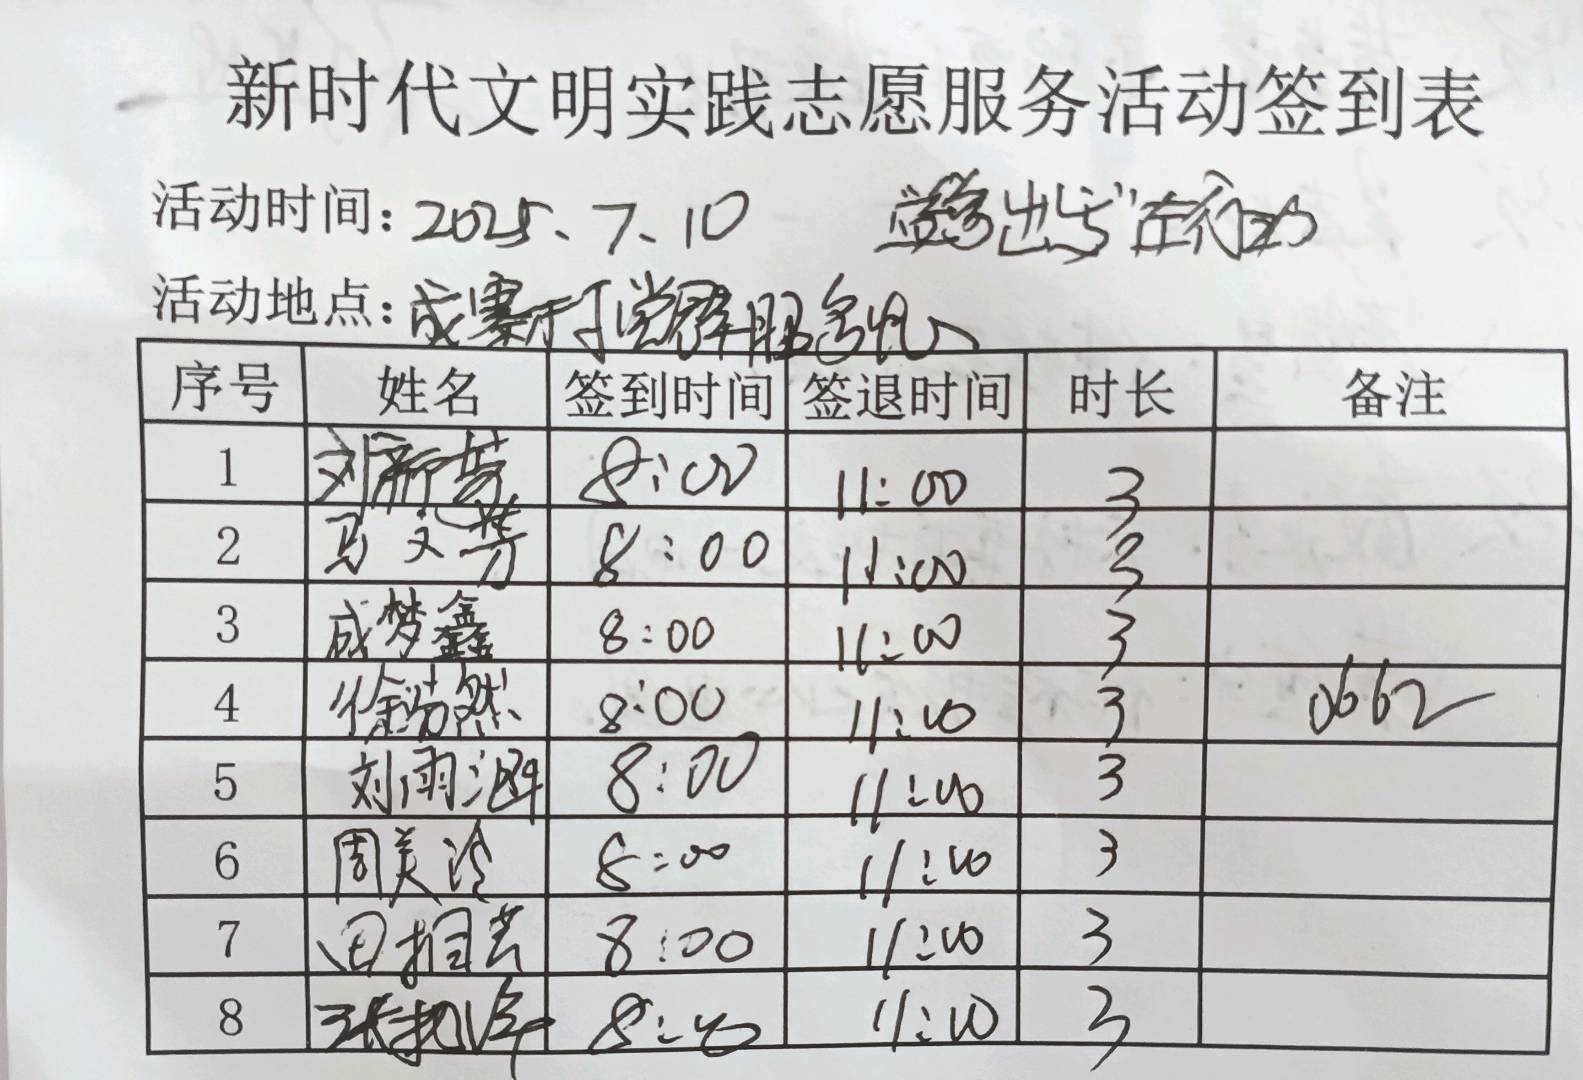 新时代文明实践志愿服务活动签到表
活动时间：2025、7、10
活动地点：成寨村党群服务中心
序号 姓名 签到时间 签退时间 时长 备注
1 刘新芳 8:00 11:00 3
2 马文芳 8:00 11:00 3
3 成梦鑫 8:00 11:00 3
4 徐浩然 8:00 11:00 3 0662
5 刘雨 8:00 11:00 3
6 周美玲 8:00 11:00 3
7 田 8:00 11:00 3
8 张 8:00 11:00 3